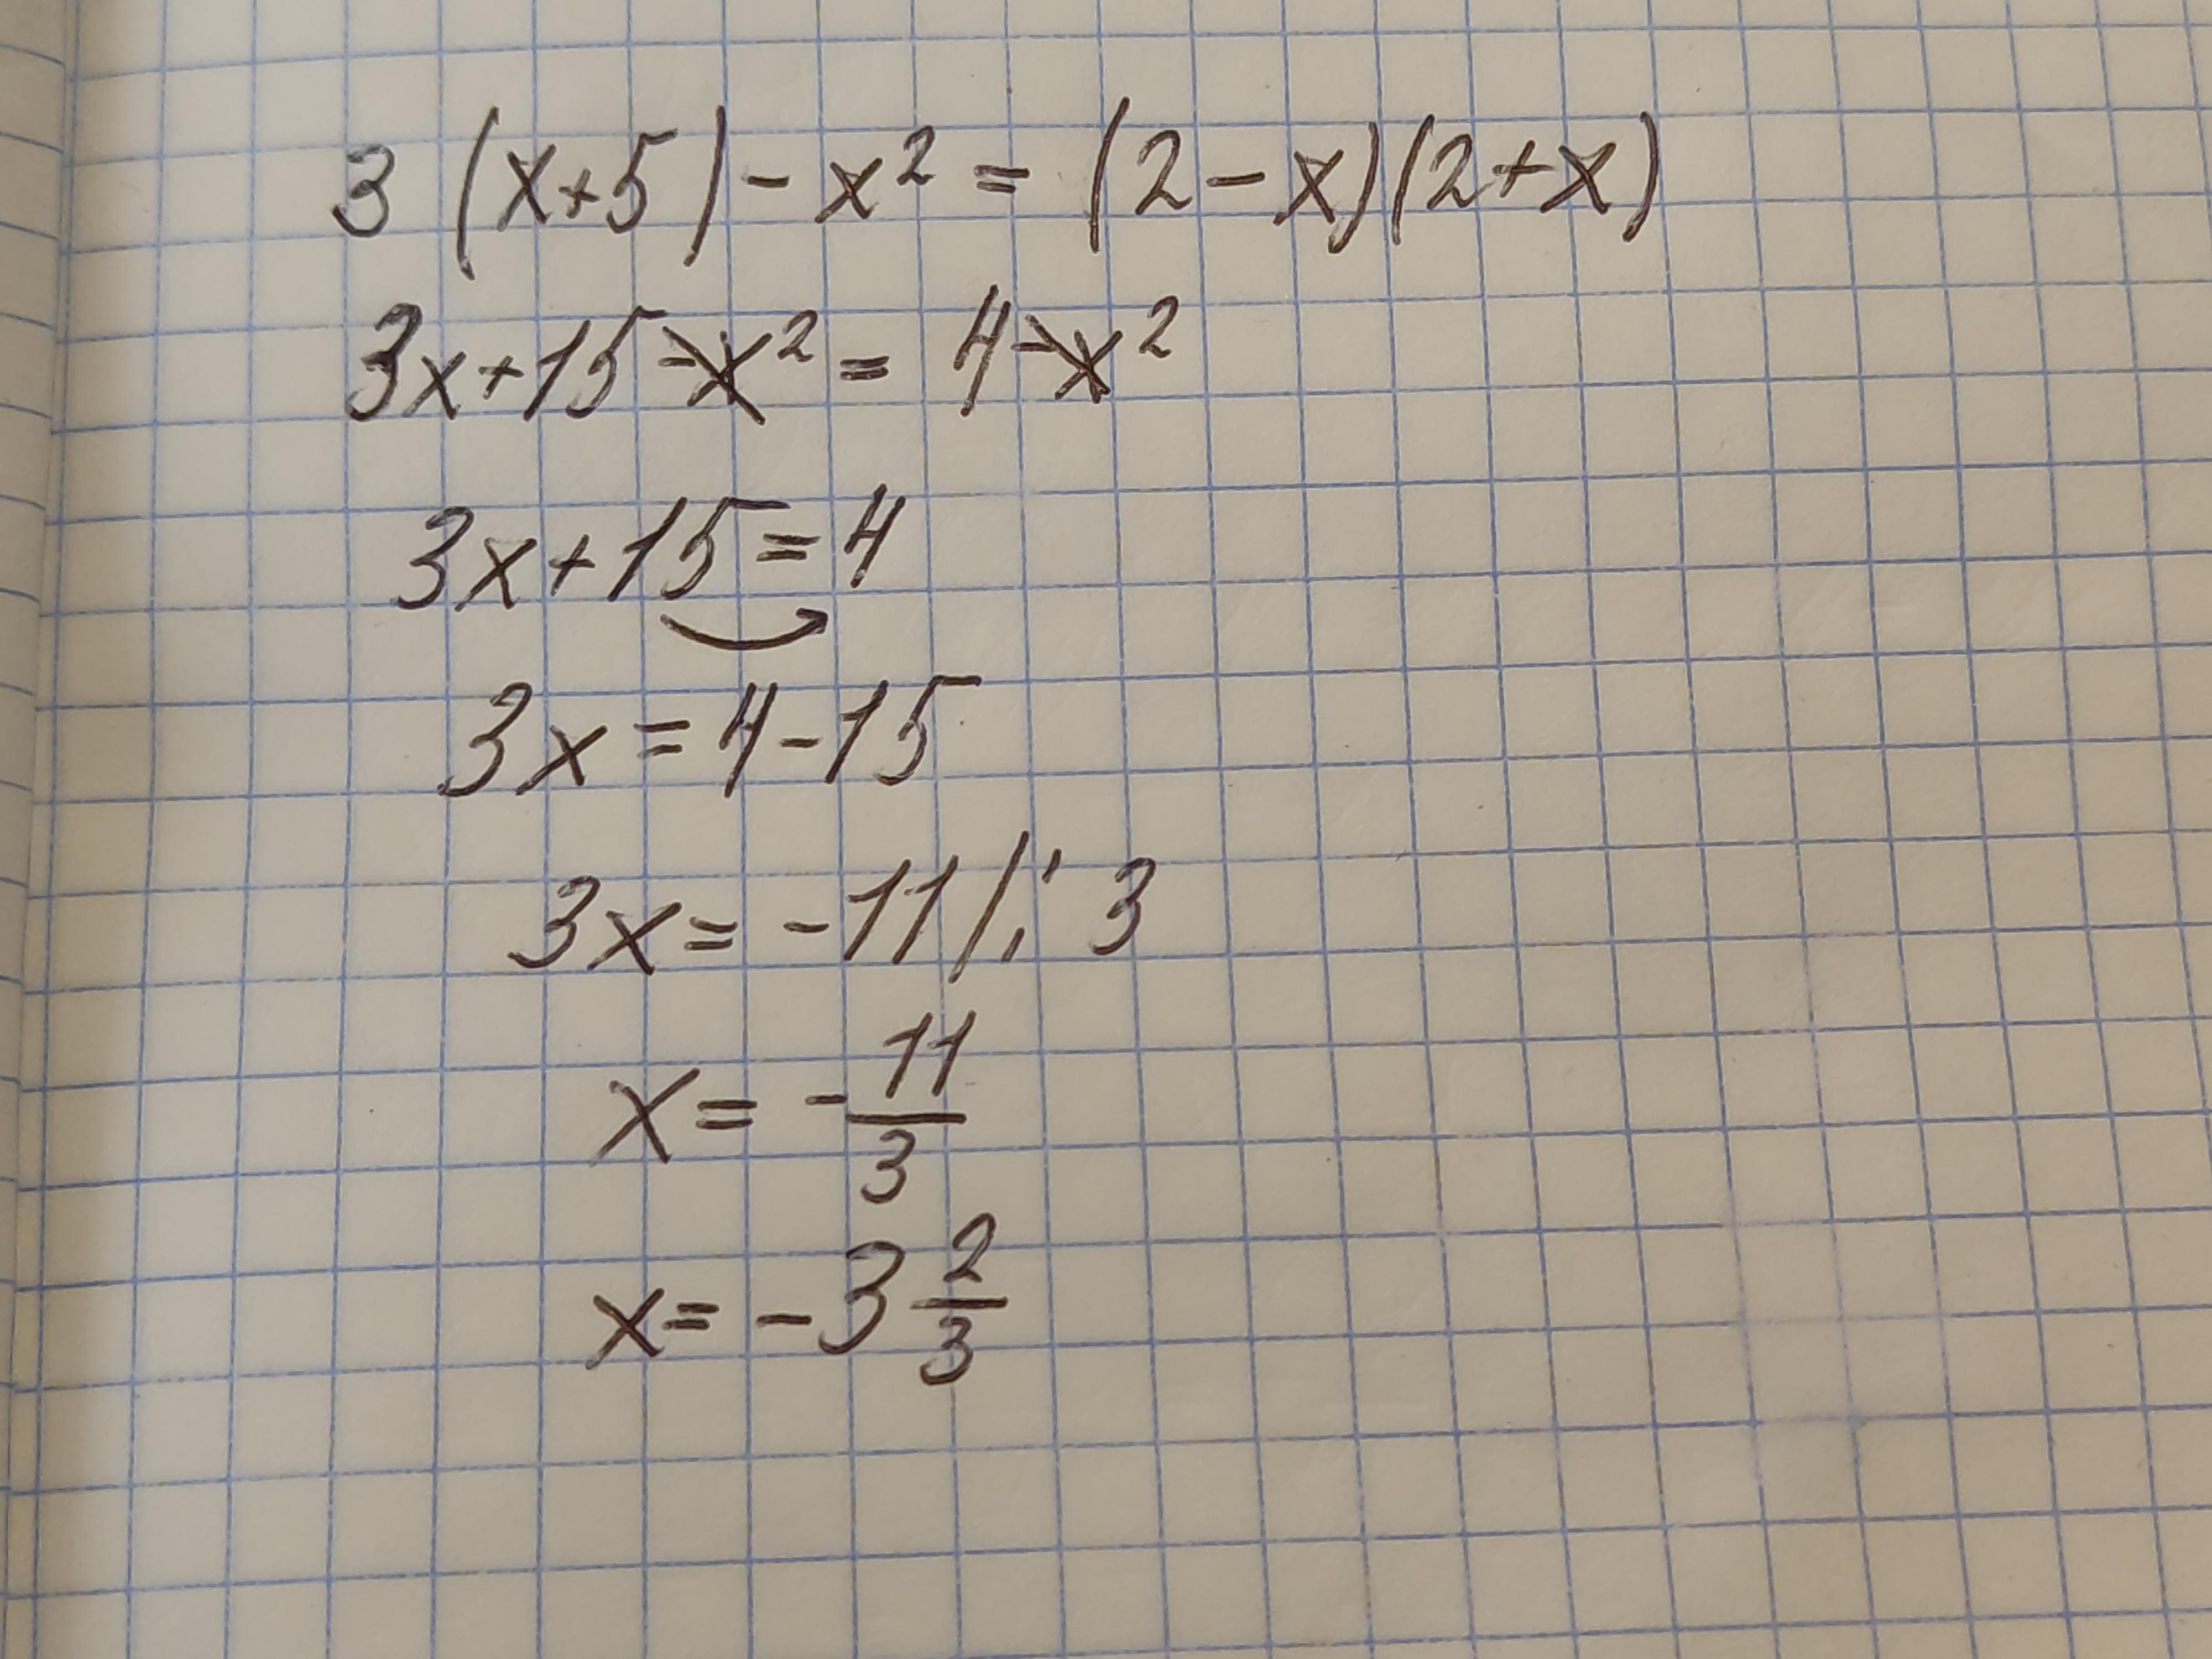 3 (x+5) - x² = (2-x)(2+x)
3x+15-x² = 4-x²
3x+15=4
3x=4-15
3x=-11 /: 3
x= -11/3
x= -3 2/3